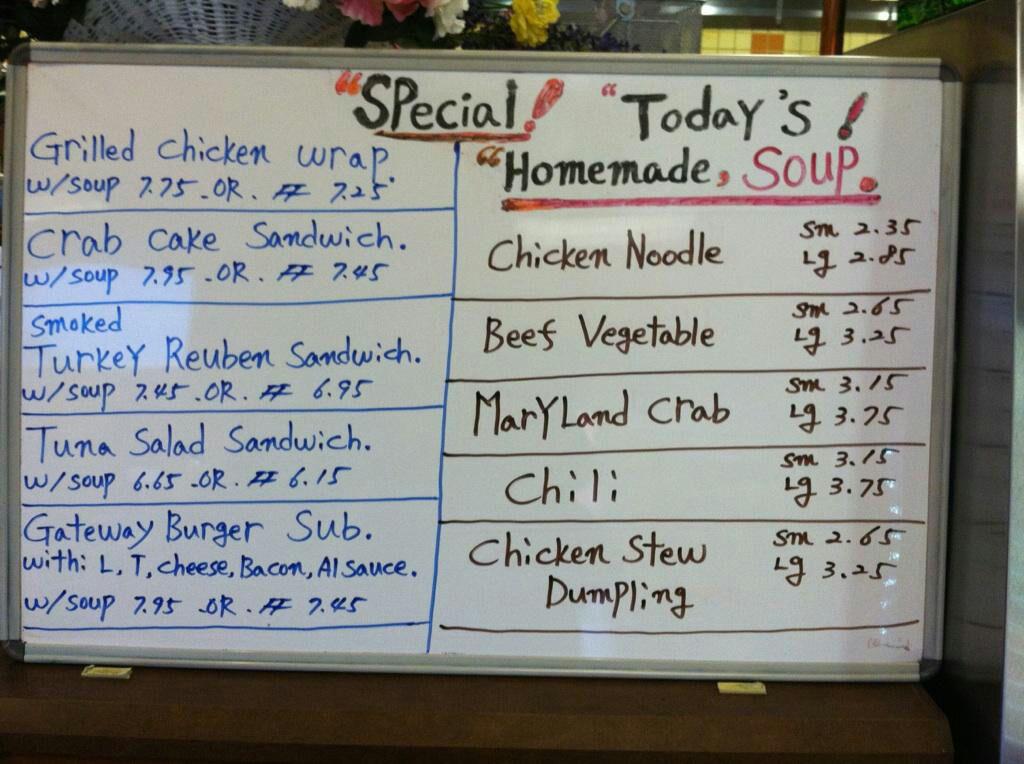 "SPecial!
Grilled chicken wrap.
w/soup 7.75 - OR. FF 7.25
Crab Cake Sandwich.
w/soup 7.95 - OR. FF 7.45
smoked
Turkey Reuben Sandwich.
w/soup 7.45 - OR. FF 6.95
Tuna Salad Sandwich.
w/soup 6.65 - OR. FF 6.15
Gateway Burger Sub.
with: L, T, cheese, Bacon, A1 sauce.
w/soup 7.95 - OR. FF 7.45
"Today's!
"Homemade, Soup.
Chicken Noodle sm 2.35
Lg 2.85
Beef Vegetable sm 2.65
Lg 3.25
MaryLand Crab sm 3.15
Lg 3.75
Chili sm 3.15
Lg 3.75
Chicken Stew sm 2.65
Lg 3.25
Dumpling